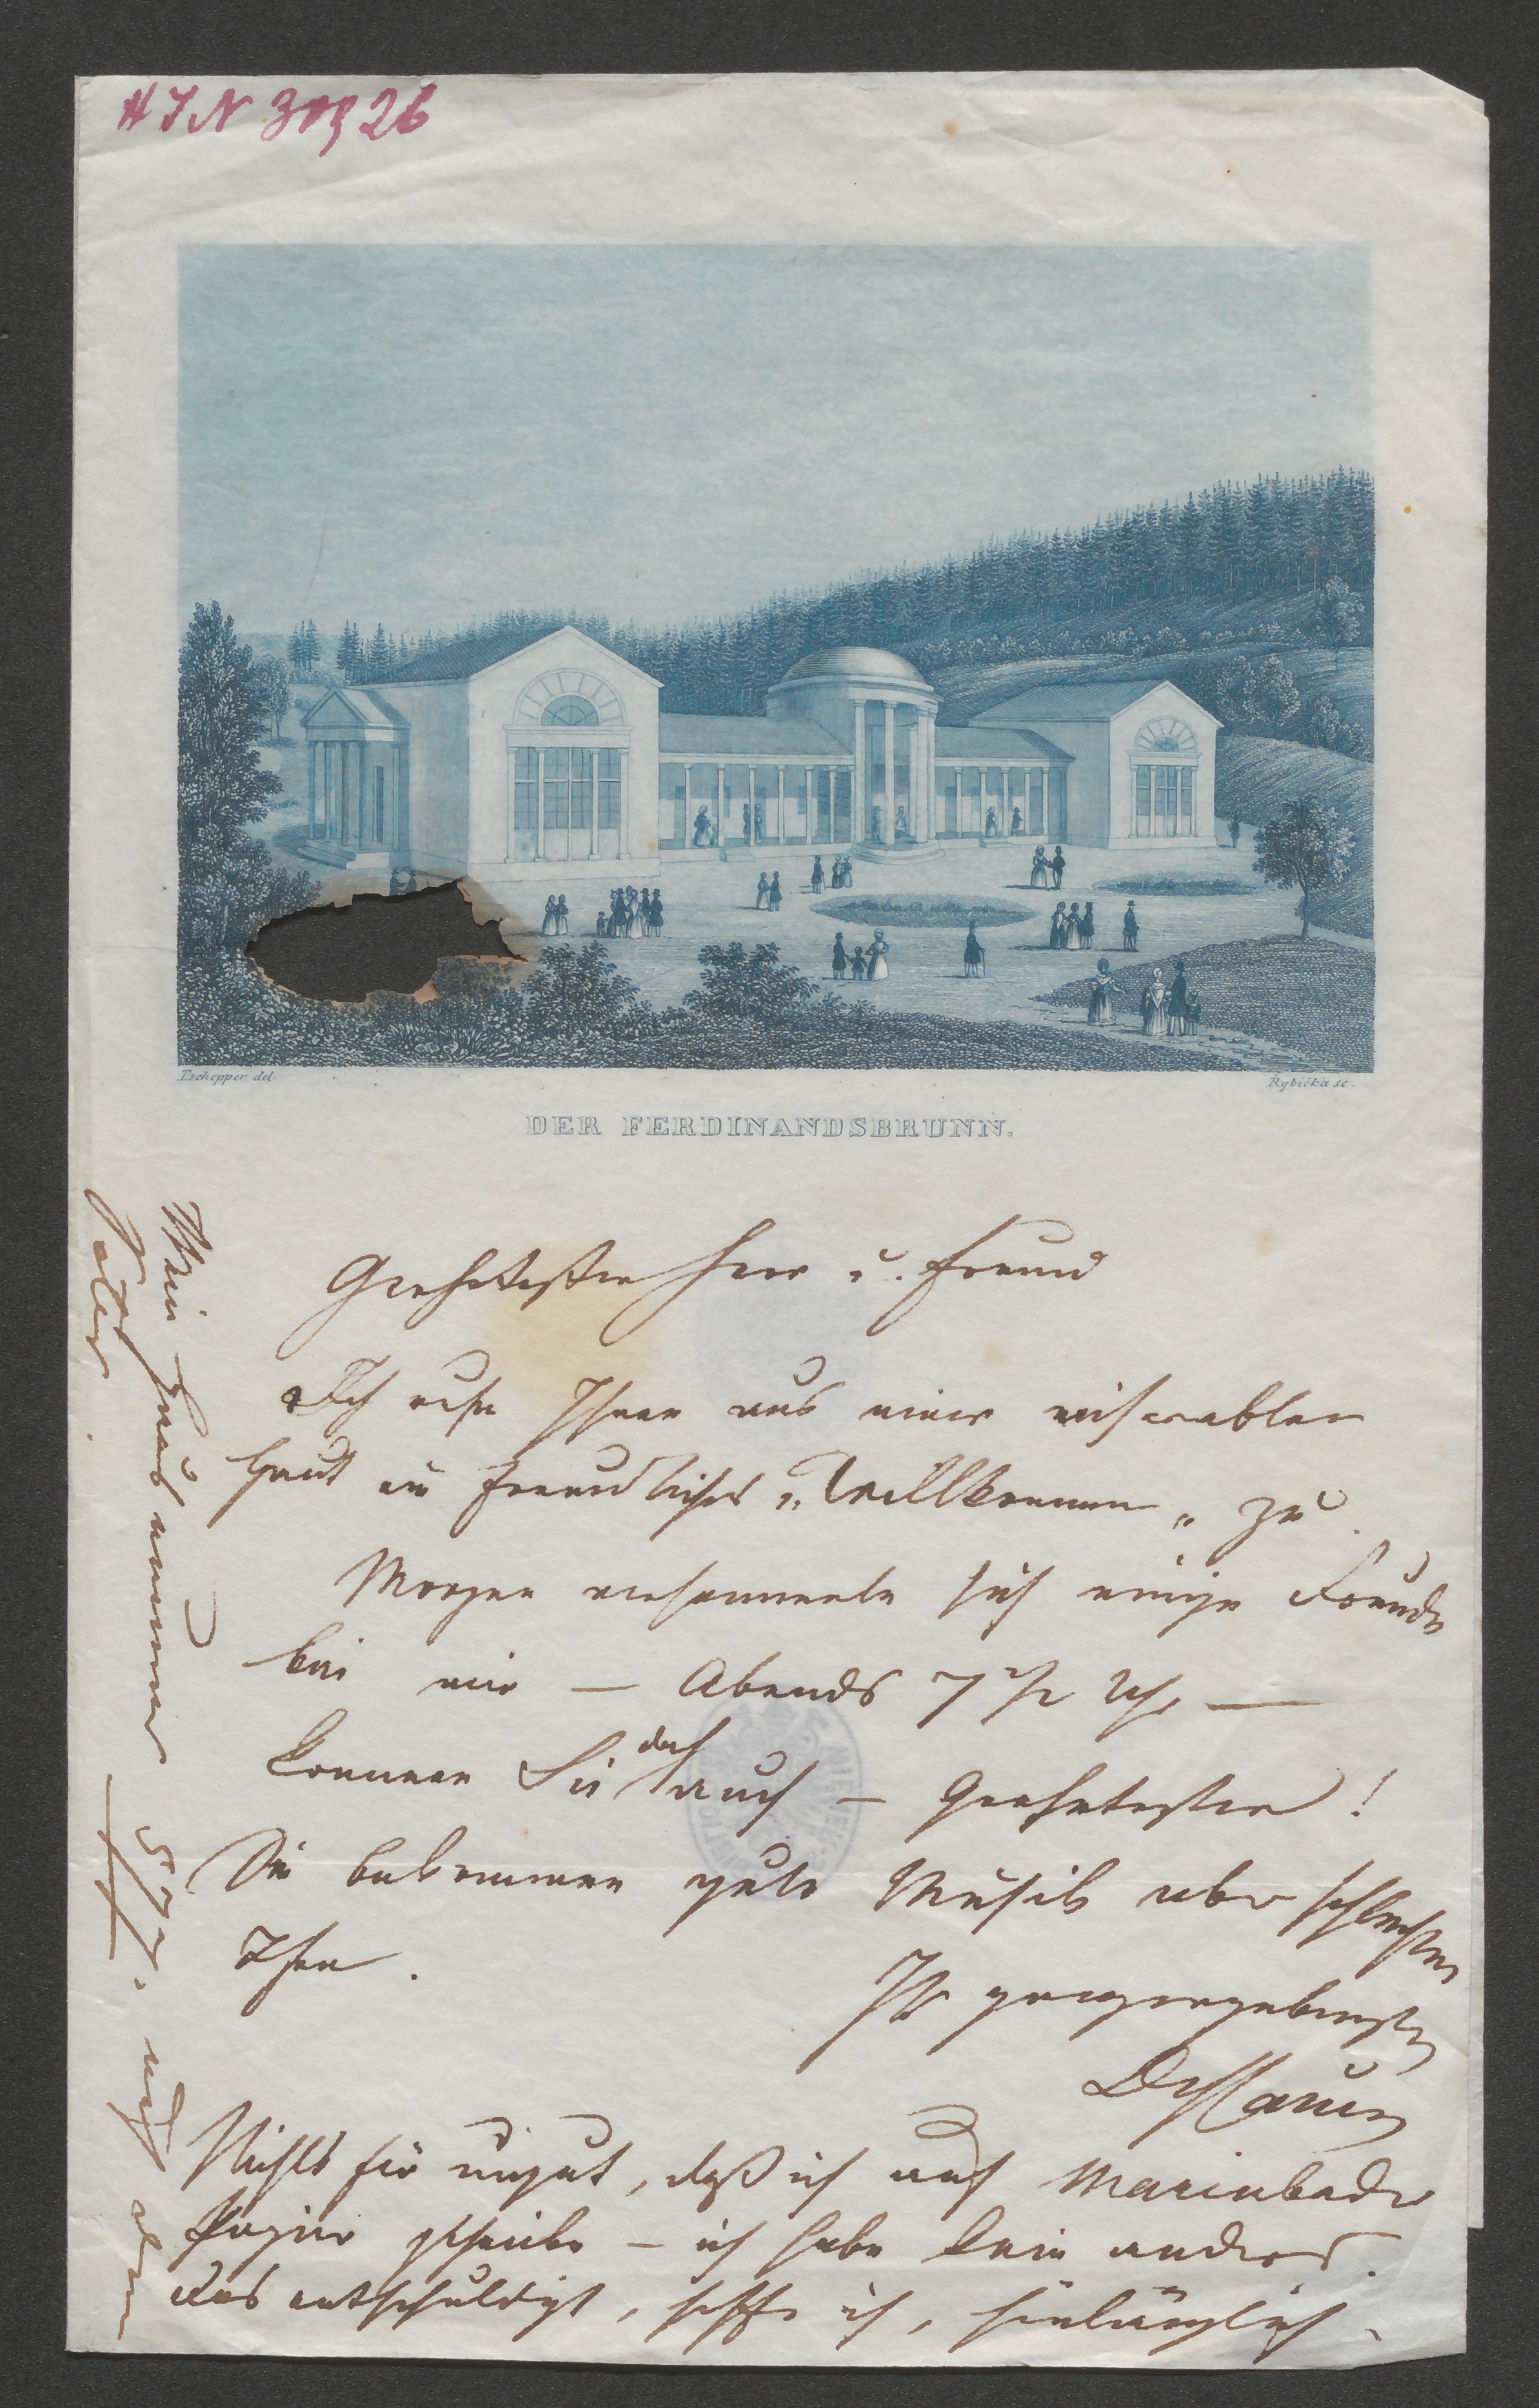 HIN 30926
Tschepper del.
Rybička sc.
DER FERDINANDSBRUNN.
Geehrtester Herr u. Freund
Ich rufe Ihnen aus einer miserablen
Haut ein freundliches „Willkommen„ zu.
Morgen versammeln sich einige Freunde
bei mir — Abends 7 1/2 Uhr —
kommen Sie doch auch — Geehrtester!
Sie bekommen gute Musik aber schlechten
Thee.
Ihr ganzergebenster
Dessauer
Nichts für ungut, daß ich auf Marienbader
Papier schreibe — ich habe kein anderes.
Das entschuldigt, hoffe ich, hinlänglich.
Mein Haus nummer 577.